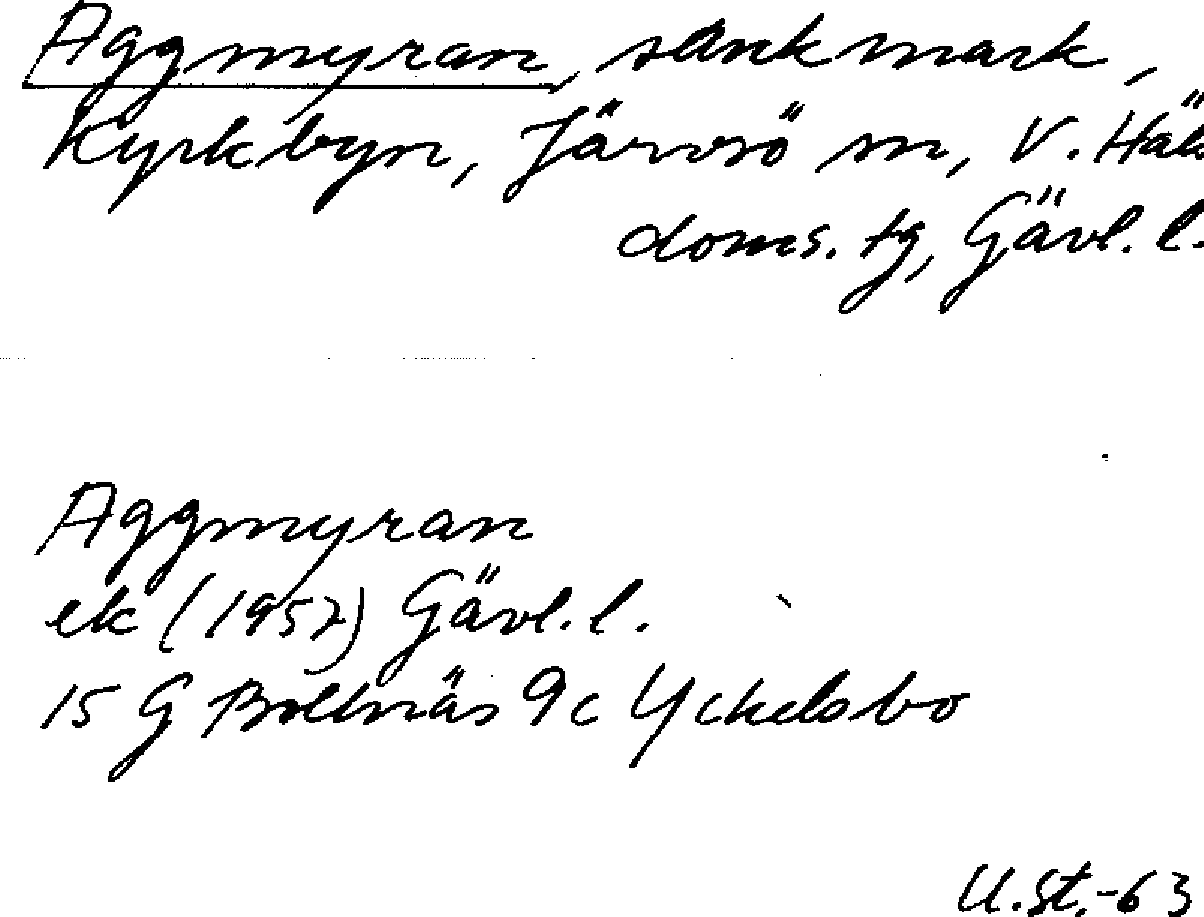 Aggmyran, sänkmark,
Kyrkbyn, Järvsö sn, V. Häls
doms. tg, Gävl. l.
Aggmyran
ek (1957) Gävl. l.
15 G Bollnäs 9c Yckelsbo
U.St.-63